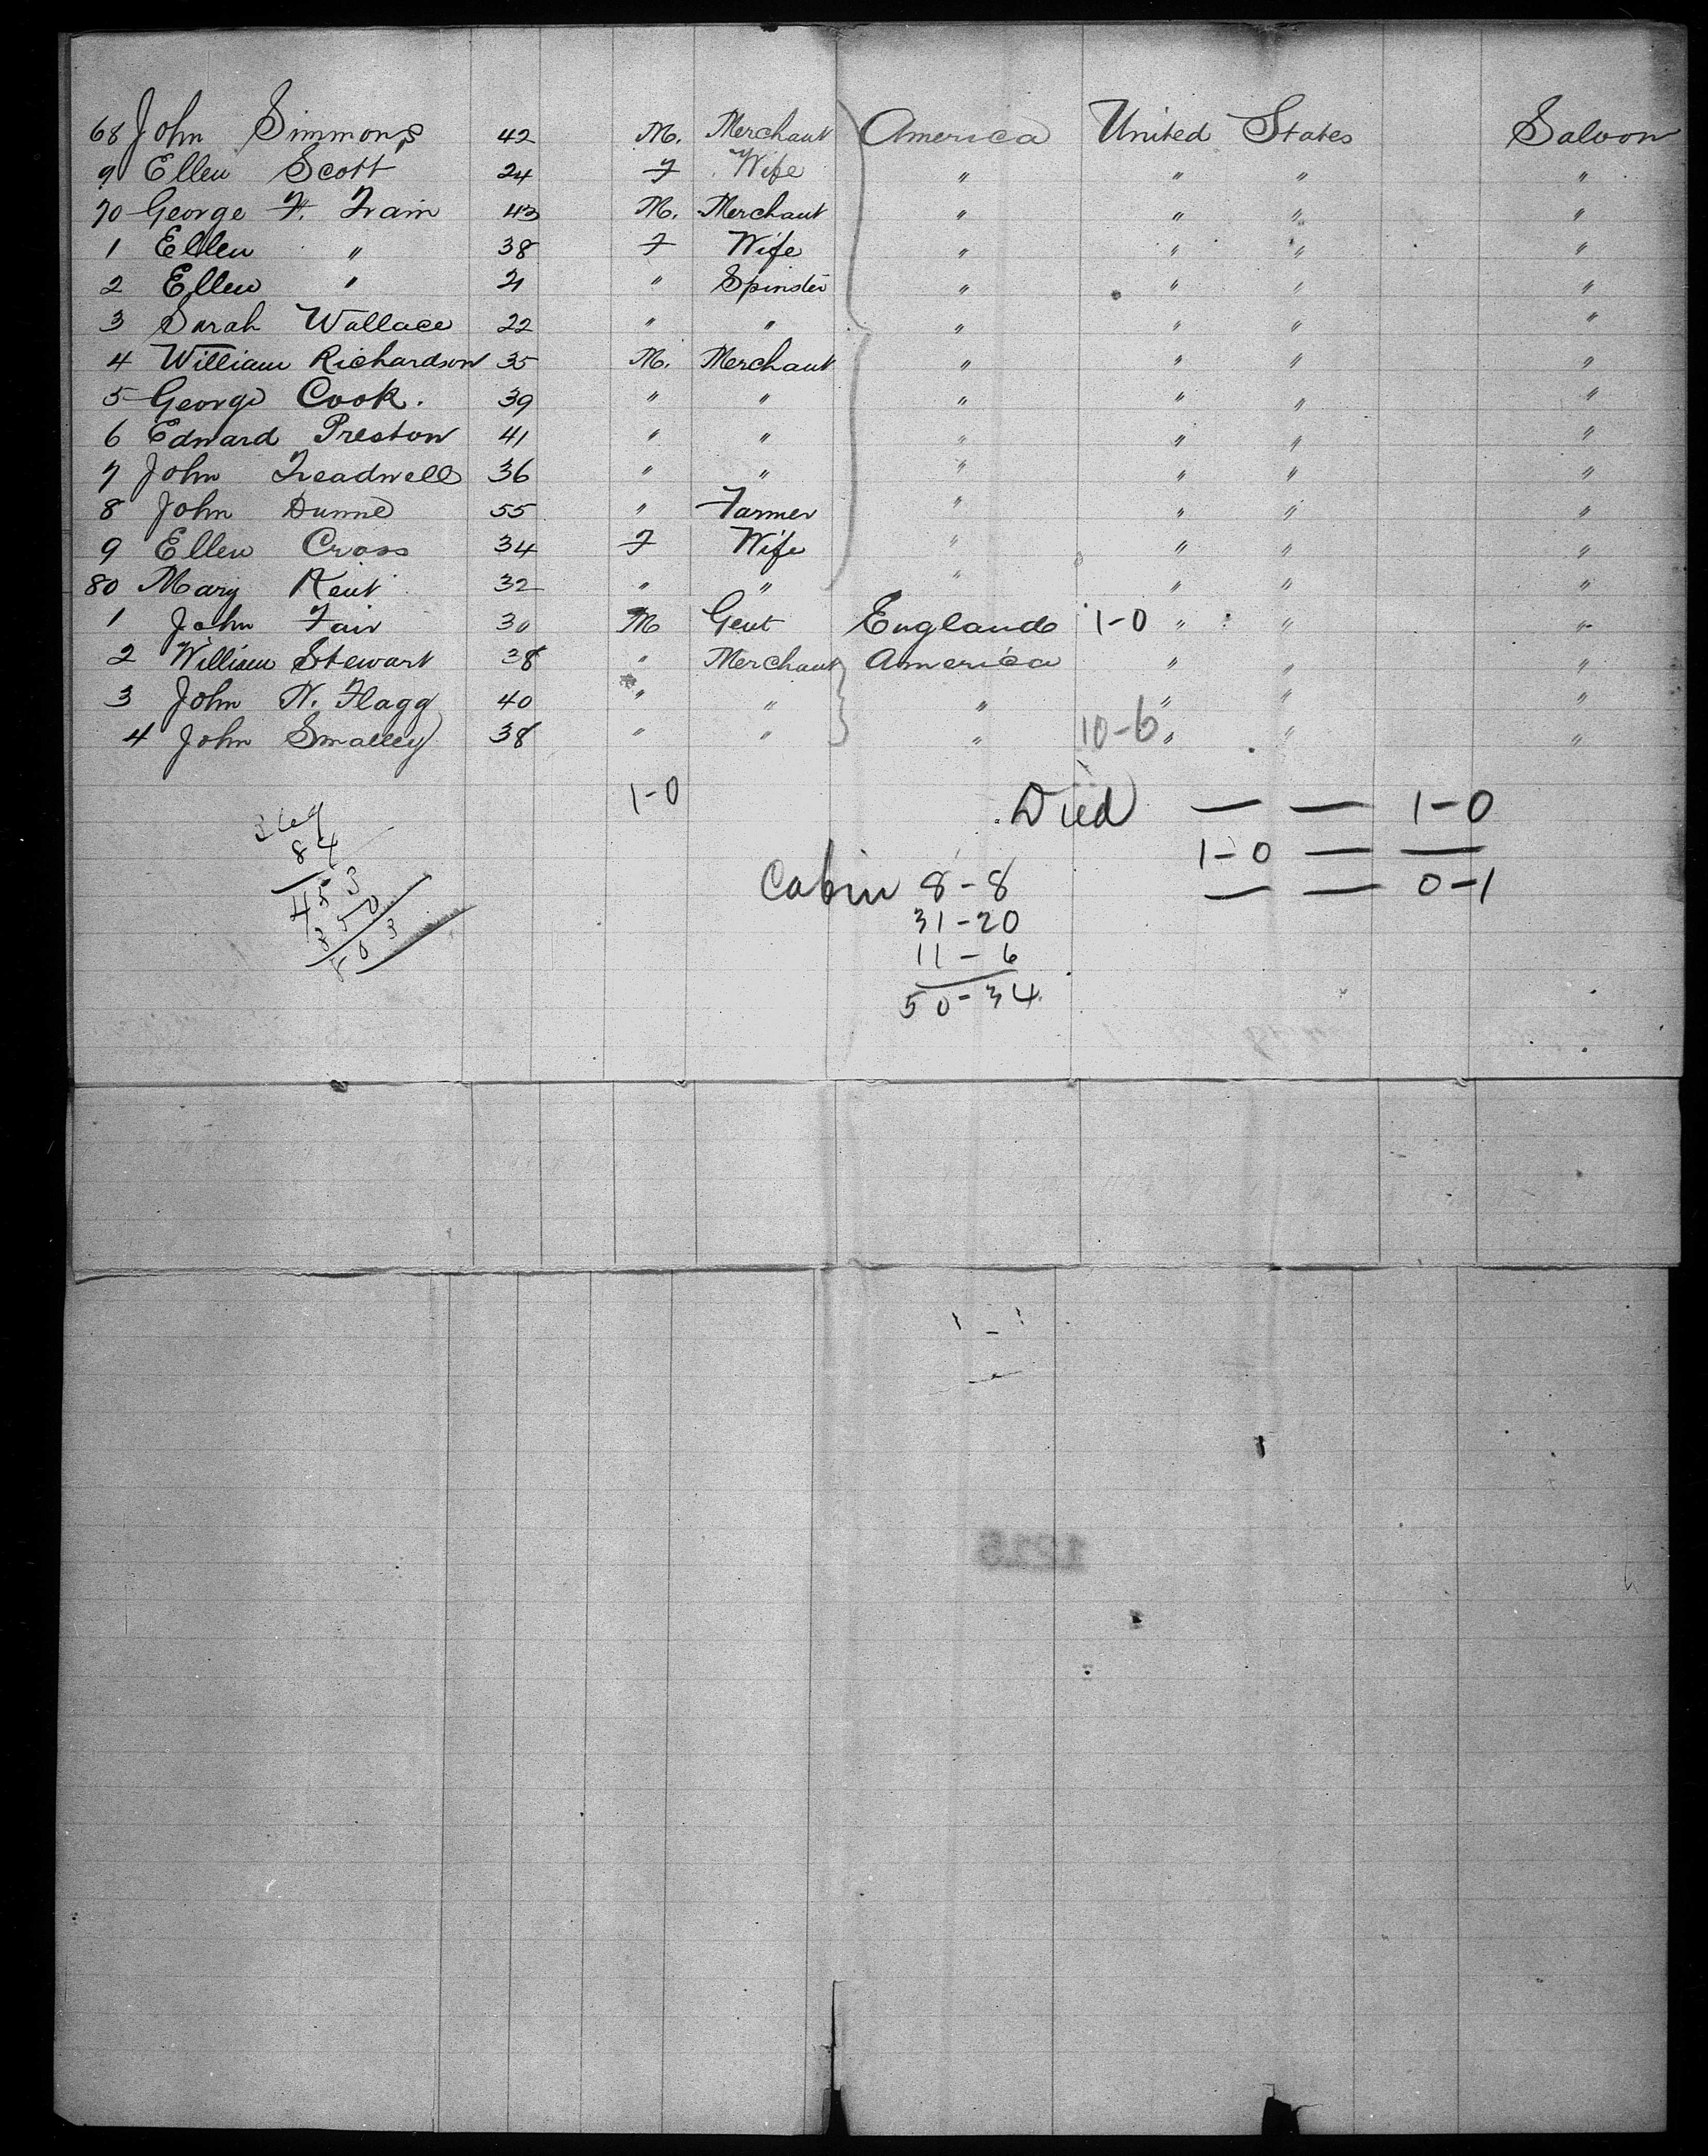 68 John Simmons 42 M. Merchant America United States Saloon
9 Ellen Scott 24 F Wife " " " "
70 George F. Train 43 M. Merchant " " " "
1 Ellen " 38 F Wife " " " "
2 Ellen " 21 " Spinster " " " "
3 Sarah Wallace 22 " " " " " "
4 William Richardson 35 M. Merchant " " " "
5 George Cook. 39 " " " " " "
6 Edward Preston 41 " " " " " "
7 John Treadwell 36 " " " " " "
8 John Dunne 55 " Farmer " " " "
9 Ellen Cross 34 F Wife " " " "
80 Mary Kent 32 " " " " " "
1 John Fair 30 M Gent England 1-0 " " "
2 William Stewart 38 " Merchant America " " "
3 John N. Flagg 40 " " " " " "
4 John Smalley 38 " " " 10-6 " " "
1-0 Died — — 1-0
1-0 — —
84
Cabin 8-8 — — 0-1
453
31-20
350
11-6
803
50-34
1215